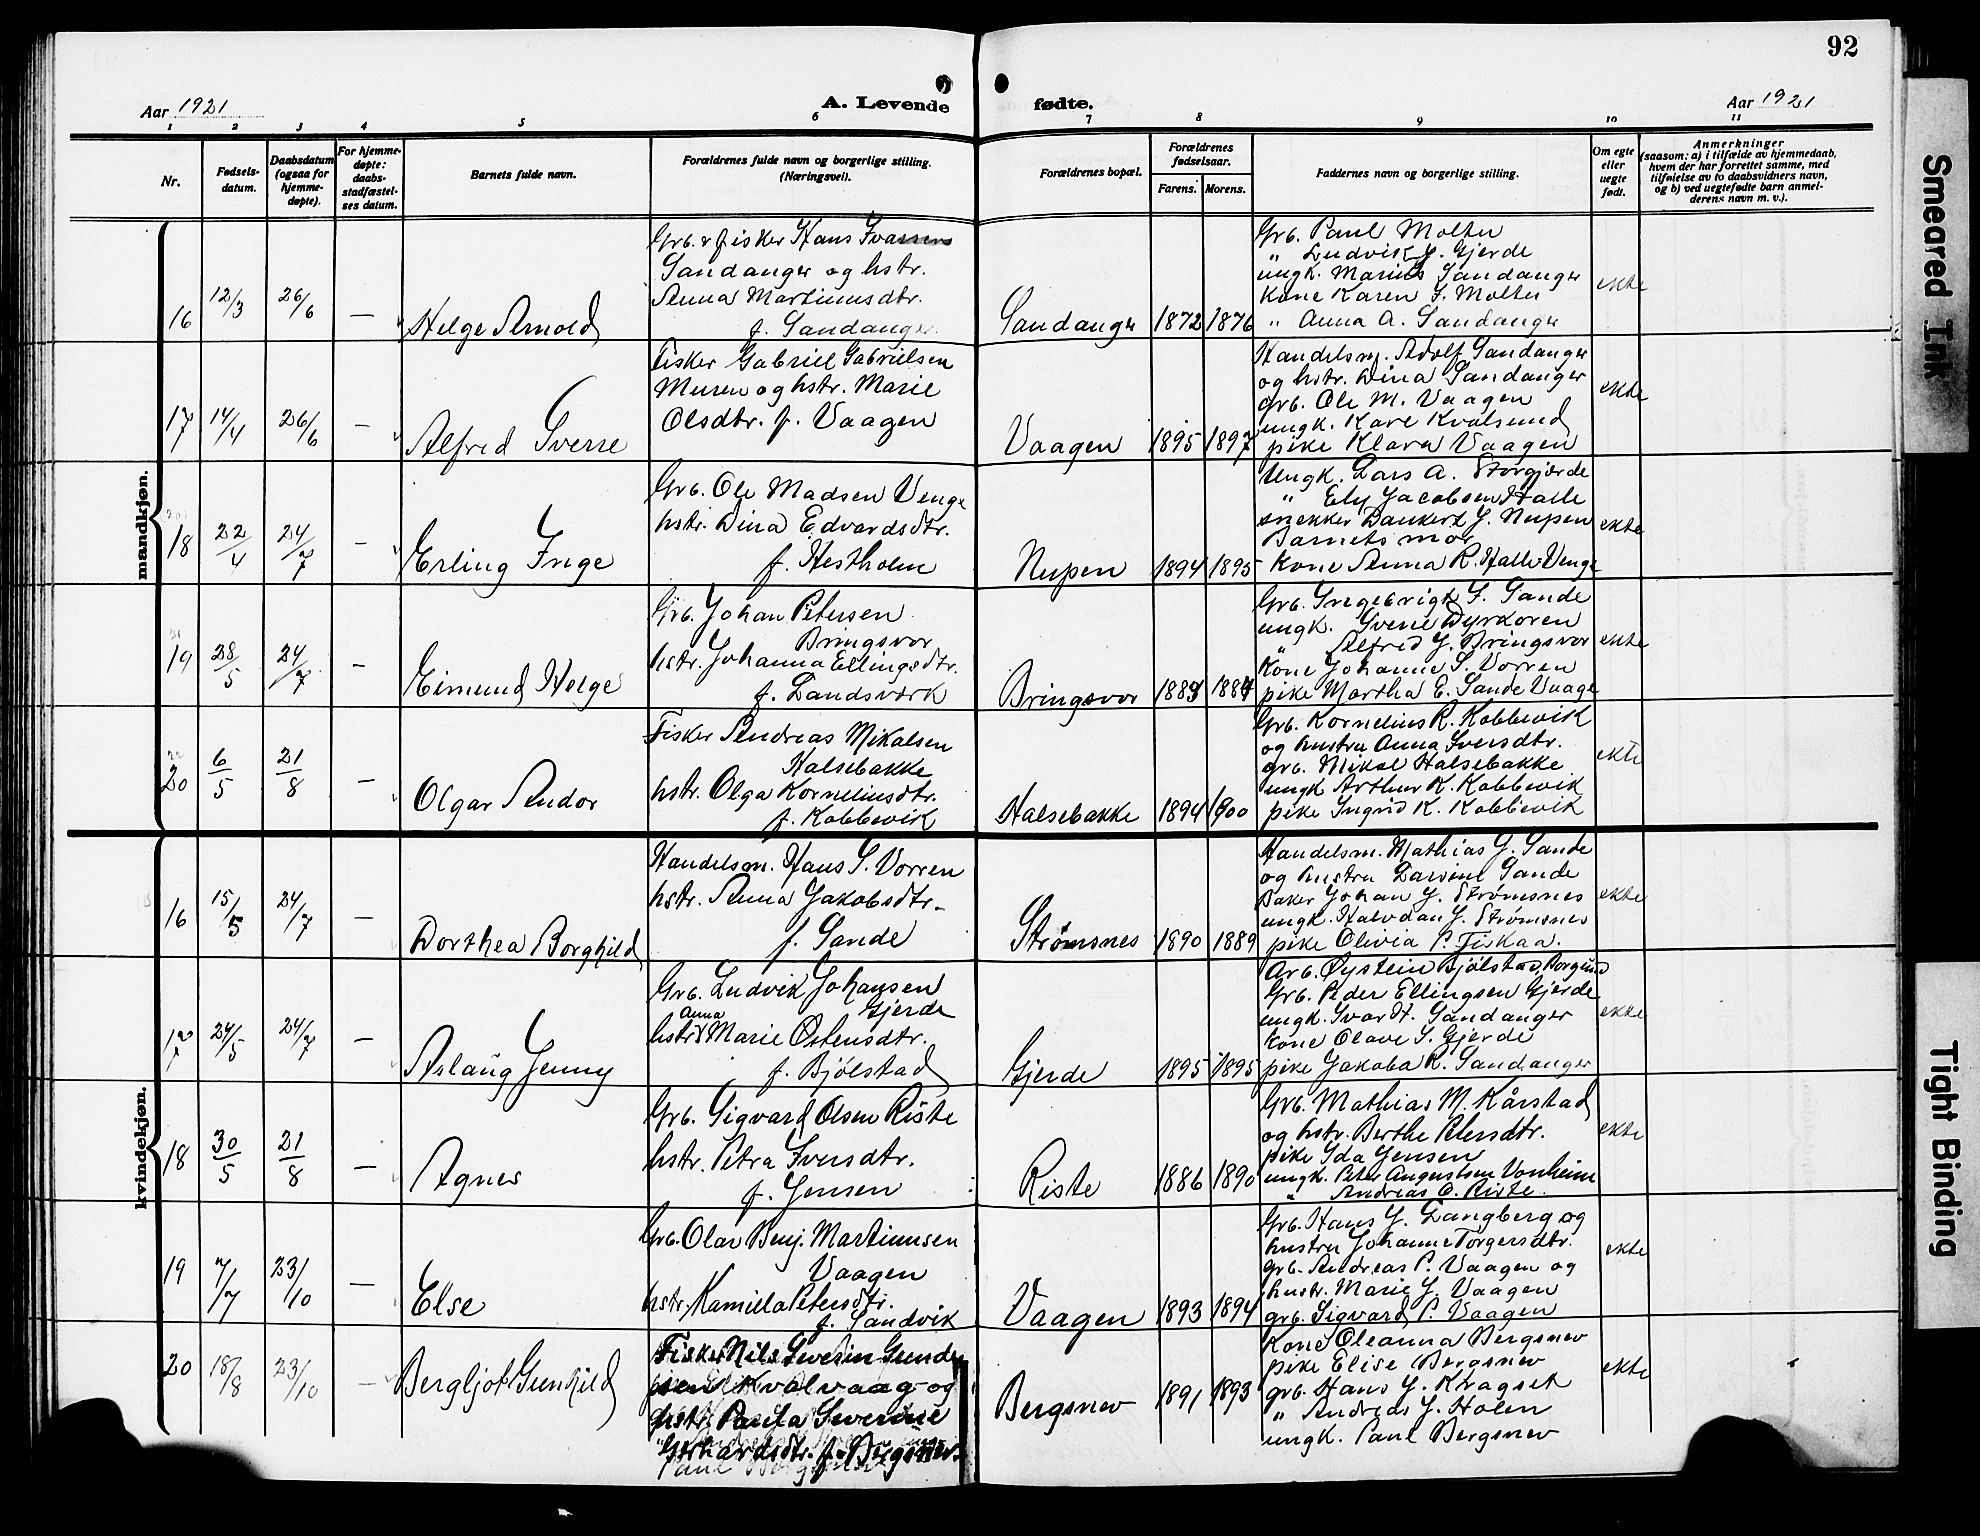 92
Aar 1921
A. Levende
fødte.
Aar 1921
1 2 3 4 5 6 7 8 9 10 11
Nr.
Fødsels-
datum.
Daabsdatum
(ogsaa for
hjemme-
døpte).
For hjemme-
døpte:
daabs-
stadfæstel-
ses datum.
Barnets fulde navn.
Forældrenes fulde navn og borgerlige stilling.
(Næringsvei).
Forældrenes bopæl.
Forældrenes
fødselsaar.
Farens. Morens.
Faddernes navn og borgerlige stilling.
Om egte
eller
uegte
født.
Anmerkninger
(saasom: a) i tilfælde av hjemmedaab,
hvem der har forrettet samme, med
tilføielse av to daabsvidners navn,
og b) ved uegtefødte barn anmel-
derens navn m. v.).
mandkjøn.
16 12/3 26/6 — Helge Arnold
Grb. & fisker Hans Ivarsen
Sandanger og hstr.
Anna Martinusdtr.
f. Sandanger
Sandanger 1872 1876
Grb. Paul Molten
" Ludvik J. Gjerde
ungk. Marius Sandanger
Kone Karen S. Molten
" Anna A. Sandanger
ekte
17 14/4 26/6 — Alfred Sverre
Fisker Gabriel Gabrielsen
Muren og hstr. Marie
Olsdtr. f. Vaagen
Vaagen 1895 1897
Handelsm. Adolf Sandanger
og hstr. Dina Sandanger
grb. Ole M. Vaagen
ungk. Kare Kvalsund
pike Klara Vaagen
ekte
18 22/4 24/7 — Erling Inge
Grb. Ole Madsen Venge
hstr. Dina Edvardsdtr.
f. Hestholm
Nupen 1894 1895
Ungk. Lars A. Storgjerde
" Ely Jacobsen Halle
snekker Bankert J. Nupen
Barnets mor
Kone Anna R. Halle Venge
ekte
19 28/5 24/7 — Eimund Helge
Grb. Johan Petersen
Bringsvor
hstr. Johanna Ellingsdtr.
f. Landsværk
Bringsvor 1884
Grb. Ingebrigt S. Sande
ungk. Svene Dyrkoren
" Alfred J. Bringsvor
Kone Johanne S. Vorren
pike Martha E. Sande Vaage
ekte
20 6/5 21/8 — Olgar Andor
Fisker Andreas Mikalsen
Halsebakke
hstr. Olga Korneliusdtr.
f. Kobbevik
Halsebakke 1894 1900
Grb. Kornelius R. Kobbevik
og hustru Anna Iversdtr.
grb. Mikal Halsebakke
ungk Arthur K. Kobbevik
pike Ingrid K. Kobbevik
ekte
kvindekjøn.
16 15/5 24/7 — Dorthea Borghild
Handelsm. Hans S. Vorren
hstr. Anna Jakobsdtr.
f. Sande
Strømsnes 1890 1889
Handelsm. Mathias J. Sande
og hustru Larsine Sande
Baker Johan J. Strømsnes
ungk. Halvdan J. Strømsnes
pike Olivia P. Fiskaa.
ekte
17 24/5 24/7 — Aslaug Jenny
Grb. Ludvik Johansen
Gjerde
Anna
hstr. Marie Østensdtr.
f. Bjølstad
Gjerde 1895 1895
Arb. Øystein Bjølstad, Borgund
Grb. Peder Ellingsen Gjerde
ungk. Ivar H. Sandanger
Kone Olave S. Gjerde
pike Jakoba R. Sandanger
ekte
18 30/5 21/8 — Agnes
Grb. Sigvard Olsen Riste
hstr. Petra Iversdtr.
f. Jensen
Riste 1886 1890
Grb. Mathias M. Kårstad
og hstr. Berthe Petersdtr.
pike Ida Jensen
ungk. Peter Augustsen Vonheim
" Andreas O. Riste.
ekte
19 7/7 23/10 — Else
Grb. Olav Benj. Martinusen
Vaagen
hstr. Kamilla Petersdtr.
f. Sandvik
Vaagen 1893 1894
Grb. Hans J. Langberg og
hustru Johanne Torgersdtr.
grb. Andreas P. Vaagen og
hustr. Marie J. Vaagen
grb. Sigvard P. Vaagen
ekte
20 18/8 23/10 — Bergljot Gunhild
Fisker Nils Severin Gunder
sen Kvalvaag og
hstr. Paula Severine
Gerhardsdtr. f. Bergsnev.
Bergsnev 1891 1893
Kone Oleanna Bergsnev
pike Elise Bergsnev
grb. Hans J. Kragset
" Andreas J. Holen
ungk. Paul Bergsnev
ekte
Smeared Ink
Tight Binding